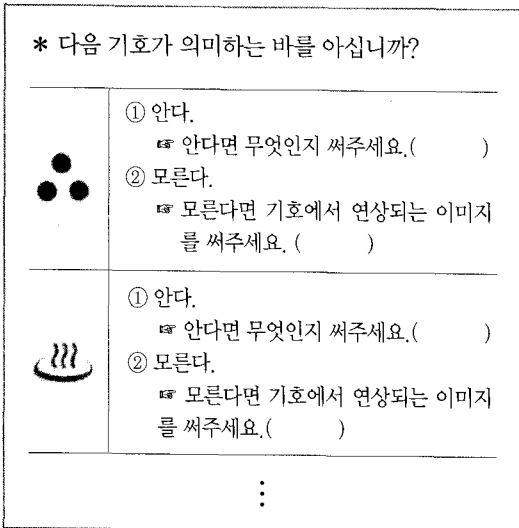 * 다음 기호가 의미하는 바를 아십니까?
① 안다.
☞ 안다면 무엇인지 써주세요.( )
② 모른다.
☞ 모른다면 기호에서 연상되는 이미지
를 써주세요. ( )
① 안다.
☞ 안다면 무엇인지 써주세요.( )
② 모른다.
☞ 모른다면 기호에서 연상되는 이미지
를 써주세요.( )
⋮